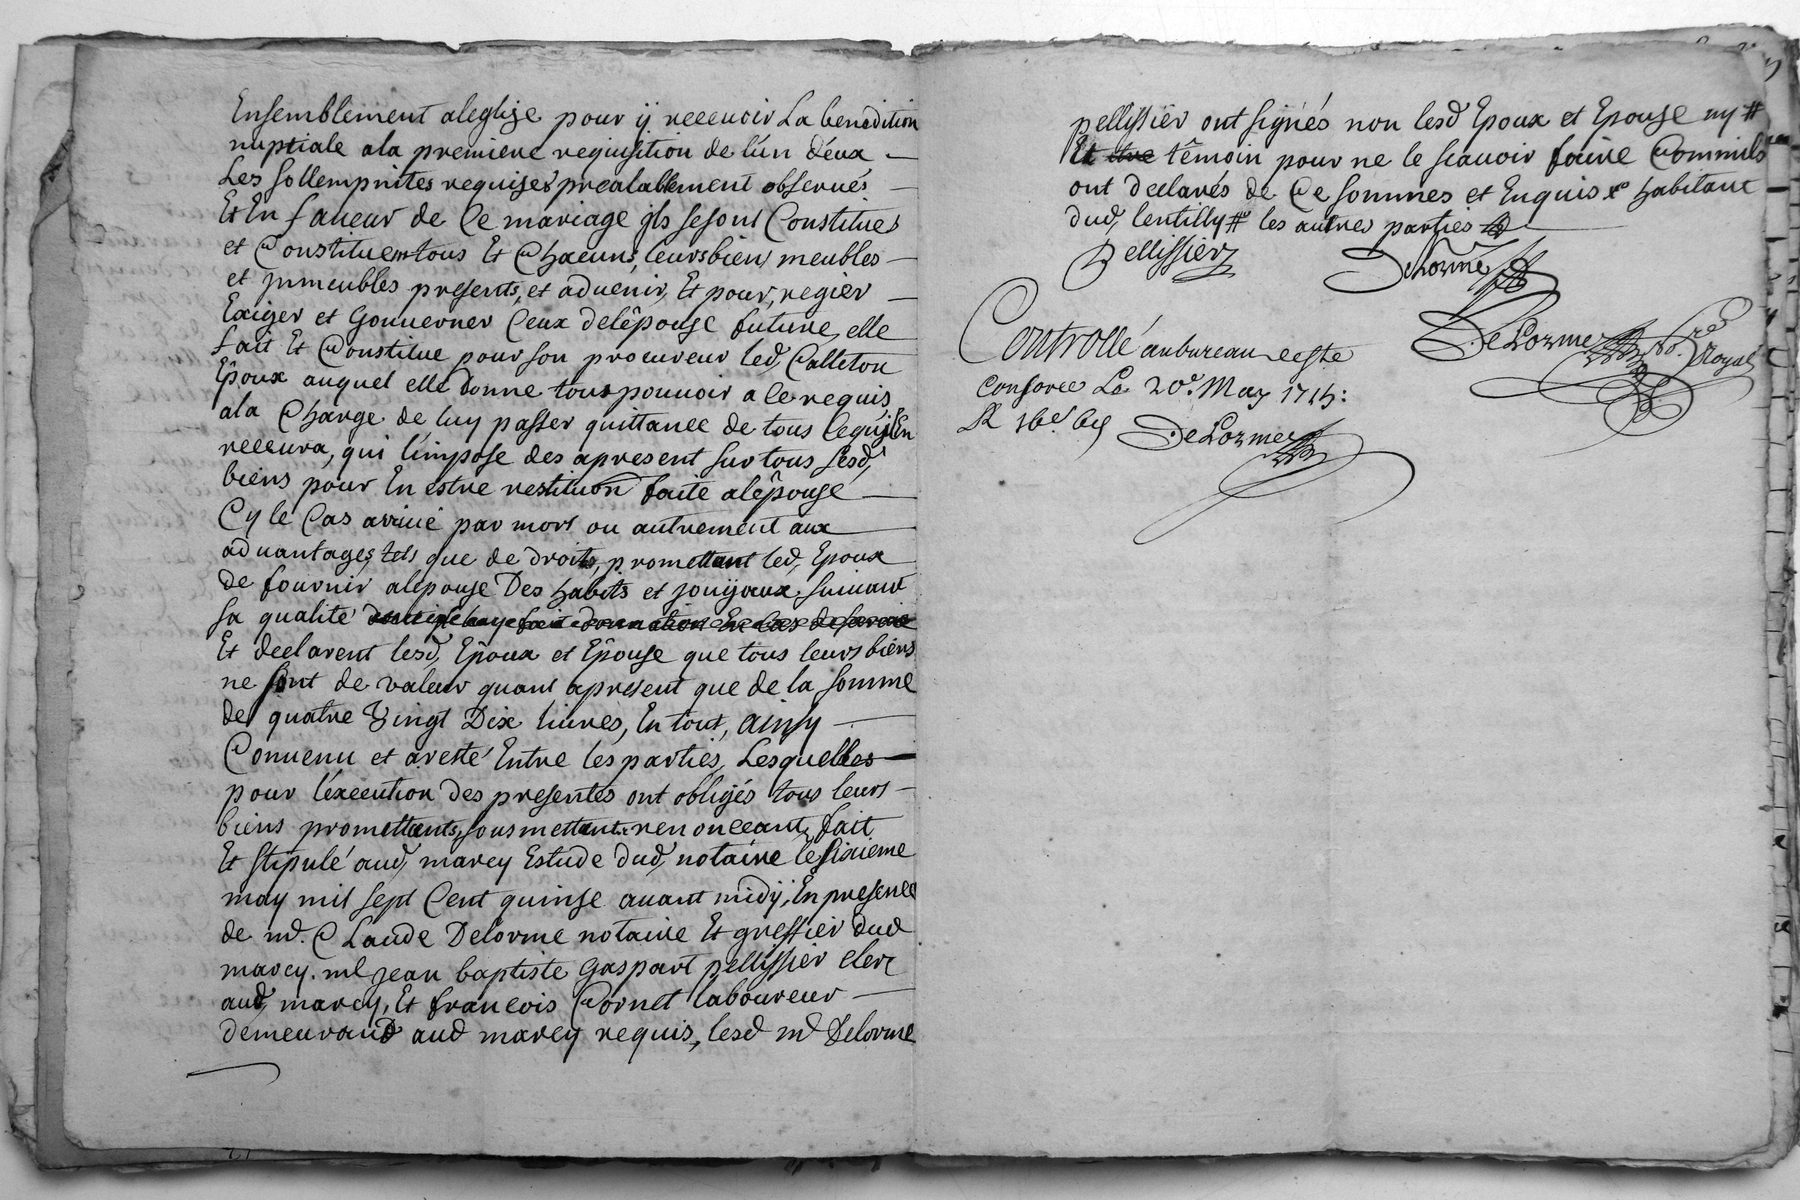 Ensemblement aleglize pour ÿ recevoir La benedition
nuptiale ala premiere requisition de lún déux
Les sollempnites requises prealablement observés
Et En faveur de Ce mariage jls se sont Constitues
et Constituent tous Et Chacuns, leurs biens meubles
et jnmeubles presents, et advenir, Et pour, regier
Exiger et Gouverner Ceux delépouse future, elle
fait Et Constitue pour son procureur led, Calleton
Epoux auquel elle donne tous pouvoir a le requis
ala Charge de luy passer quittance de tous Cequil En
recevra, qui límpose des apresent sur tous sesd,
biens pour En estre restituon faite alépouse
Cy le Cas arrivé par mort ou autrement aux
advantages tels que de droits, promettant led, Epoux
de fournir alepouse Des habits et jouÿaux suivant
sa qualité
Et declarent lesd, Epoux et Epouse que tous leurs biens
ne sont de valeur quant apresent que de la somme
de quatre Vingt Dix livres, En tout, ainsy
Convenu et aresté Entre les parties, Lesquelles
pour léxecution des presentes ont obligés tous leurs
biens promettants, sousmettant renonceant, fait
Et stipulé aud, marcy Estude dud, notaire le sixieme
may mil sept Cent quinse avant midÿ, En presence
de md. Claude Delorme notaire Et greffier dud
marcy. me jean baptiste Gaspart pellissier clerc
aud, marcy, Et francois Cornet laboureur
demeurand aud marcy requis, lesd md Delorme
pellissier ont signés non lesd Epoux et Epouse ny #
Et témoin pour ne le scavoir faire Comm'ils
ont declarés de Ce sommés et Enquis x habitant
dud, lentilly # les autres parties
Pellissier
Delorme
DeLorme no.re Royal
Controllé au bureau
Le 20e. May 1715:
DeLorme